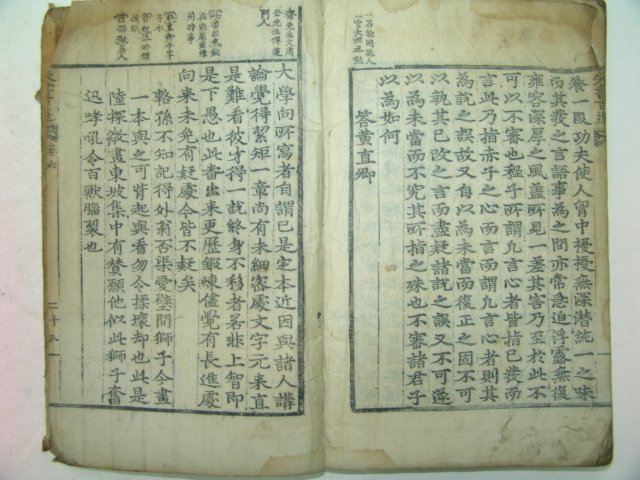 養一段功夫使人胷中擾擾無深潛純一之味
而其發之言語事為之間亦常急迫浮露無復
雍容深厚之風盖所見一差其害乃至於此不
可以不審也程子所謂凡言心者皆指已發而
言此乃指赤子之心而言而謂凡言心者則其
為說之誤故又自以為未當而復正之固不可
以執其已改之言而盡疑諸說之誤又不可遂
以為未當而不究其所指之殊也不審諸君子
以為如何
答黃直卿
一名榦閩縣人
齋先生文肅
公先生傳道
門人
大學向所寫者自謂已是定本近因與諸人講
論覺得絜矩一章尚有未細密處文字元來直
是難看彼才得一說終身不移者若非上智即
是下愚也此番出來更歷鍛煉儘覺有長進處
向來未免有疑處今皆不疑矣
輅孫不知記得外翁否渠愛壁間獅子今畫
一本與之可背起與看勿令揉壞却也此是
陸探微畫東坡集中有贊願他似此獅子奮
迅哮吼令百獸腦裂也
卷六
二十八